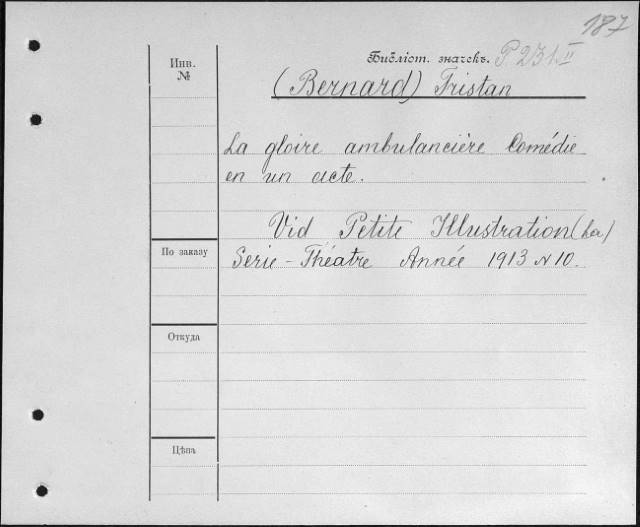 187
Инв.
№
Библіот. значекъ. P 231.II
(Bernard) Tristan
La gloire ambulancière Comédie
en un acte.
Vid Petite Illustration (La)
Serie - Théatre Année 1913 N 10.
По заказу
Откуда
Цѣна